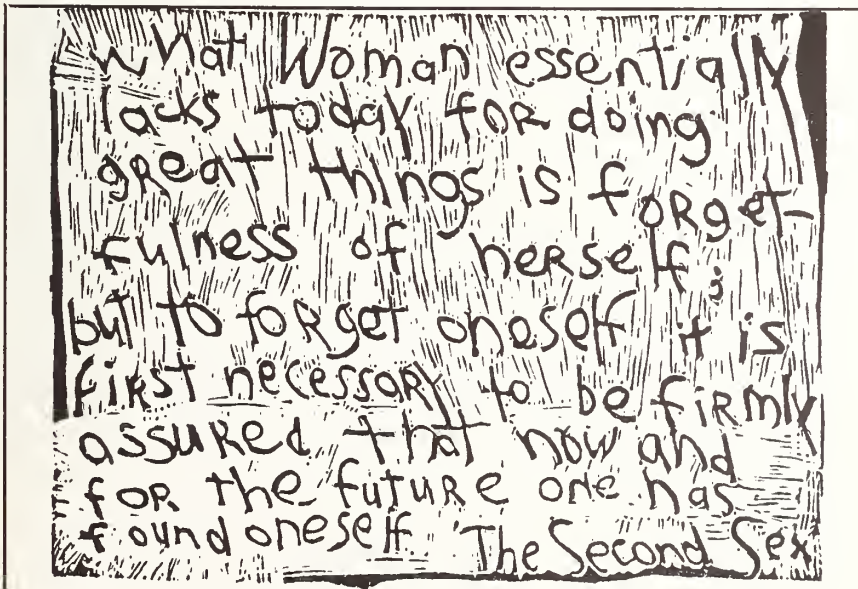 what Woman essentially
lacks today foR doing
gReat things is foRget-
fulness of heRself;
but to foRget oneself it is
fiRst necessaRy to be fiRmly
assuRed that now and
foR the futuRe one has
found oneself. "The Second Sex"